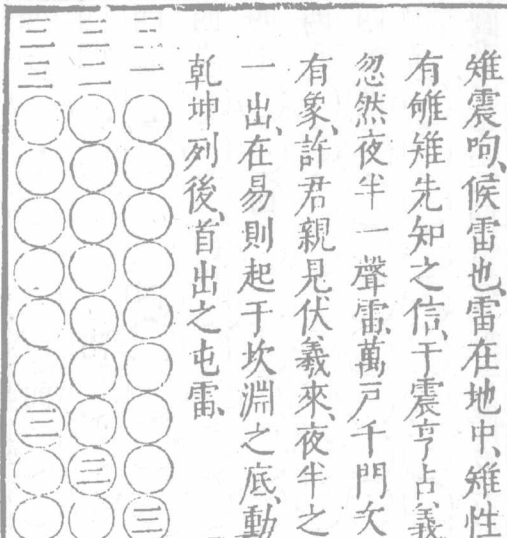 雉震呴、候雷也、雷在地中、雉性
有雊雉先知之信、于震亨占義
忽然夜半一聲雷、萬戶千門次
有象、許君親見伏羲來、夜半之
一出、在易則起于坎淵之底、動
乾坤列後、首出之屯雷、
三一
三
三二
三
三三
三